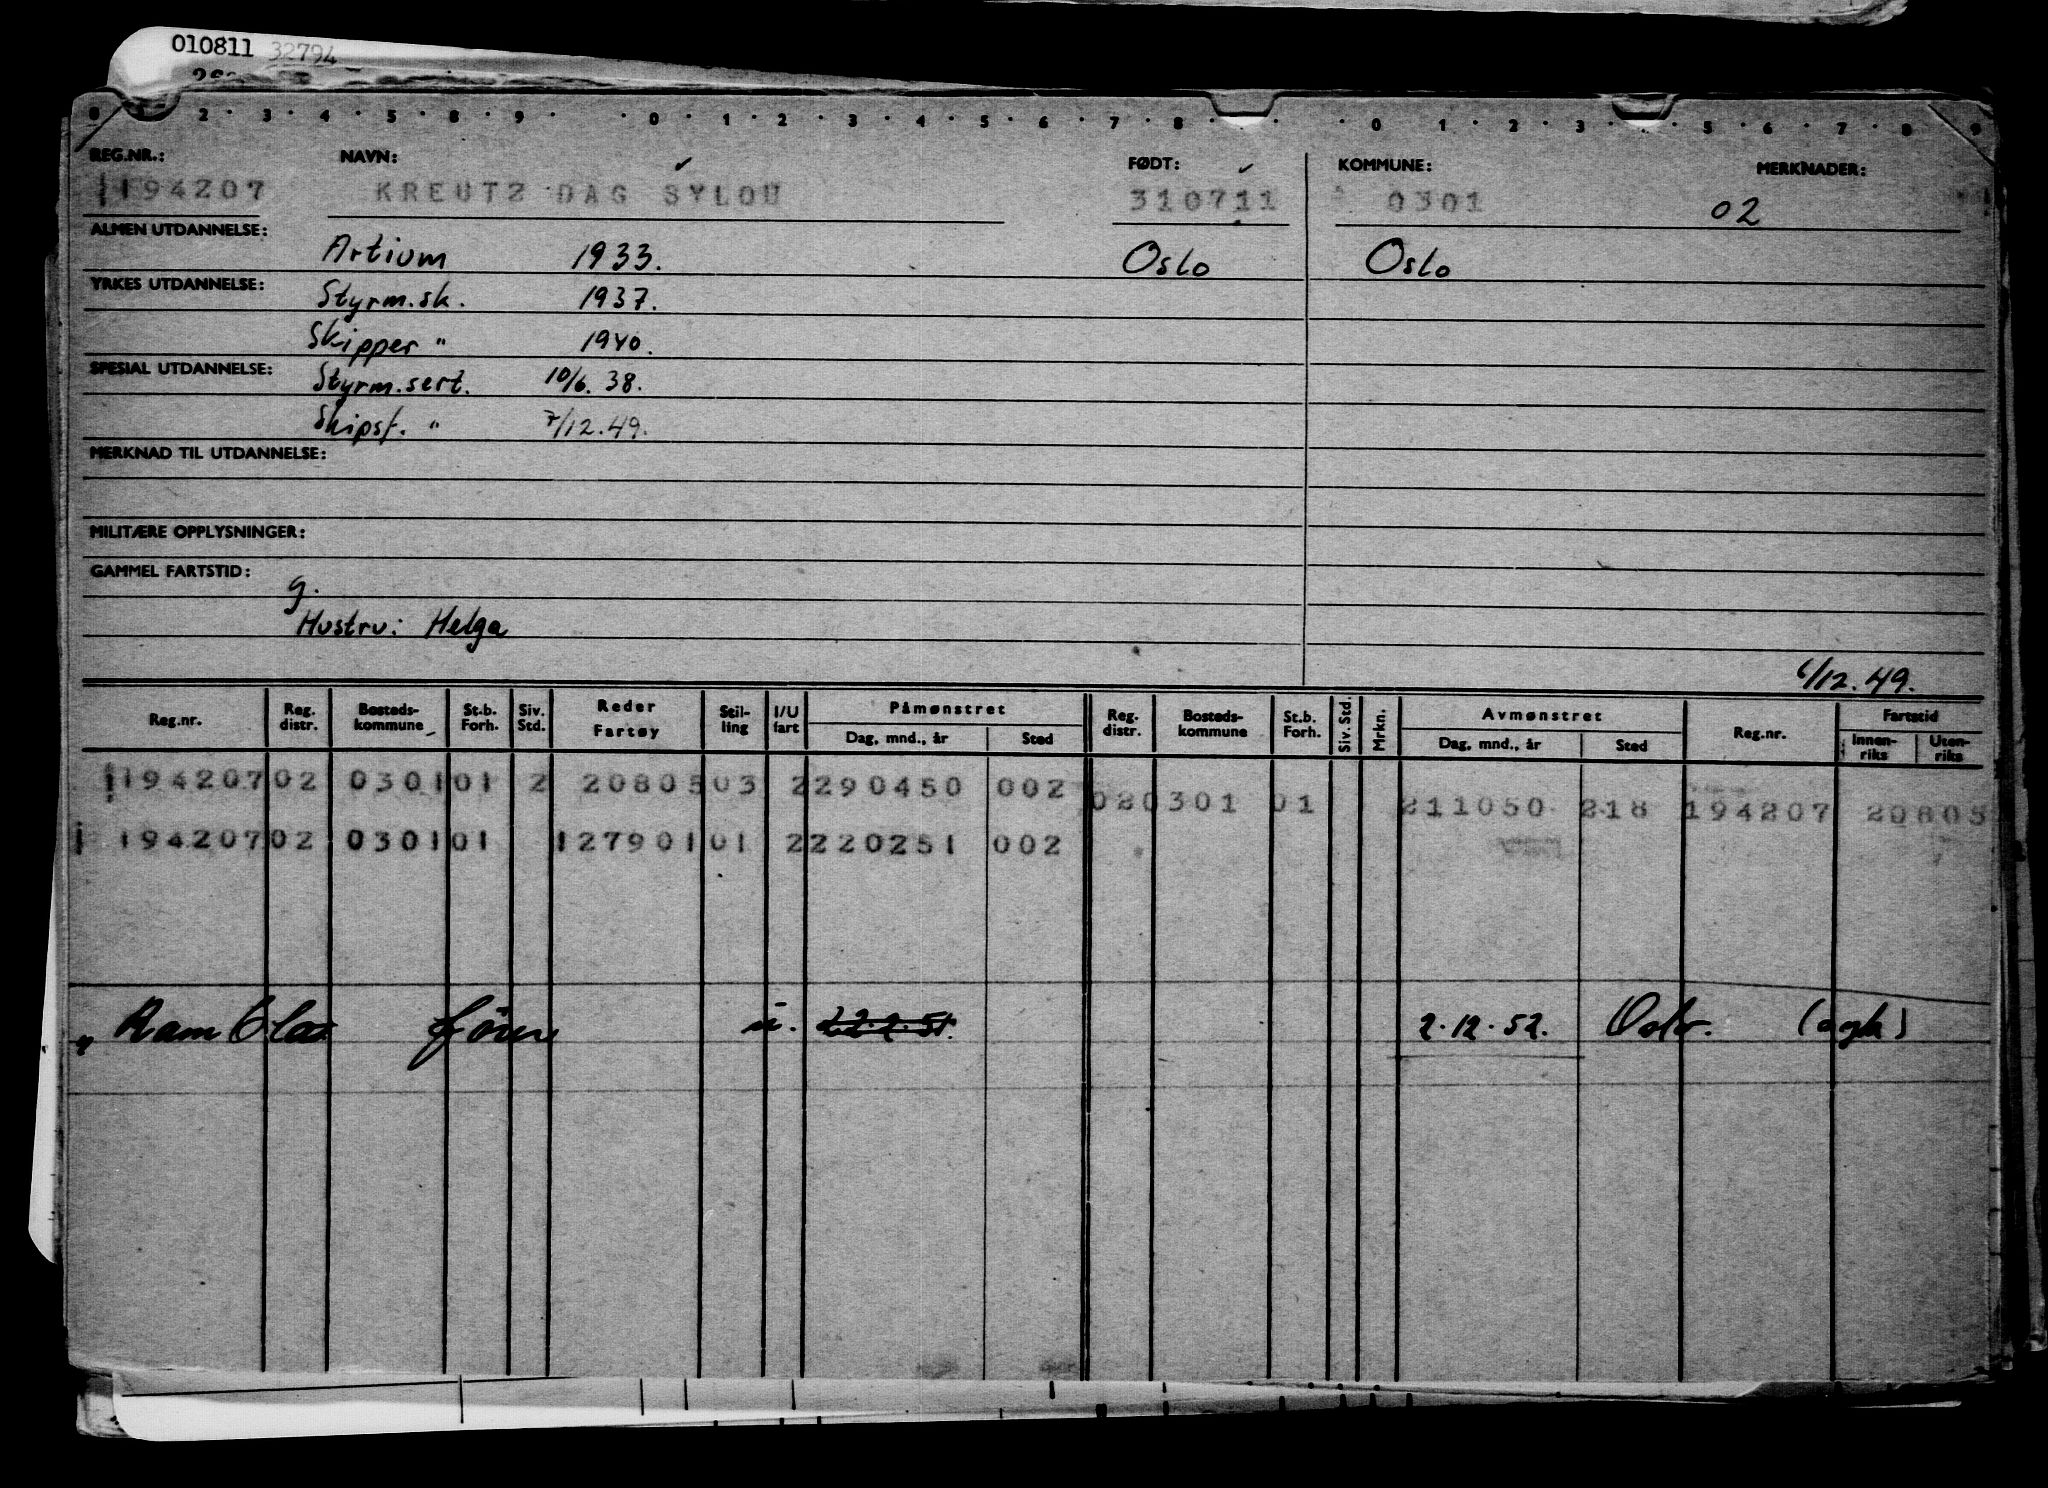 010811 32794
0 2 3 4 5 8 9 0 1 2 3 4 5 6 7 8 0 1 2 3 5 6 7 8 9
REG.NR.: NAVN: FØDT: KOMMUNE: MERKNADER:
194207 KREUTZ DAG SYLOU 310711 0301 02
ALMEN UTDANNELSE: Artium 1933. Oslo Oslo
YRKES UTDANNELSE: Styrm.sk. 1937.
Skipper " 1940.
SPESIAL UTDANNELSE: Styrm.sert. 10/6. 38.
Skipsf. " 7/12.49.
MERKNAD TIL UTDANNELSE:
MILITÆRE OPPLYSNINGER:
GAMMEL FARTSTID:
g.
Hustru: Helga
6/12.49.
Reg.nr. Reg. distr. Bosteds-kommune St.b. Forh. Siv. Std. Reder Fartøy Stil-ling I/U fart Påmønstret Dag, mnd., år Sted Reg. distr. Bosteds-kommune St.b. Forh. Siv. Std. Mrkn. Avmønstret Dag, mnd., år Sted Reg.nr. Fartstid Innen-riks Uten-riks
194207 02 0301 01 2 20805 03 2 290450 002 02 0301 01 211050 218 194207 20805
194207 02 0301 01 127901 01 2 220251 002
" u. 22.2.51. 2.12.52. Oslo.